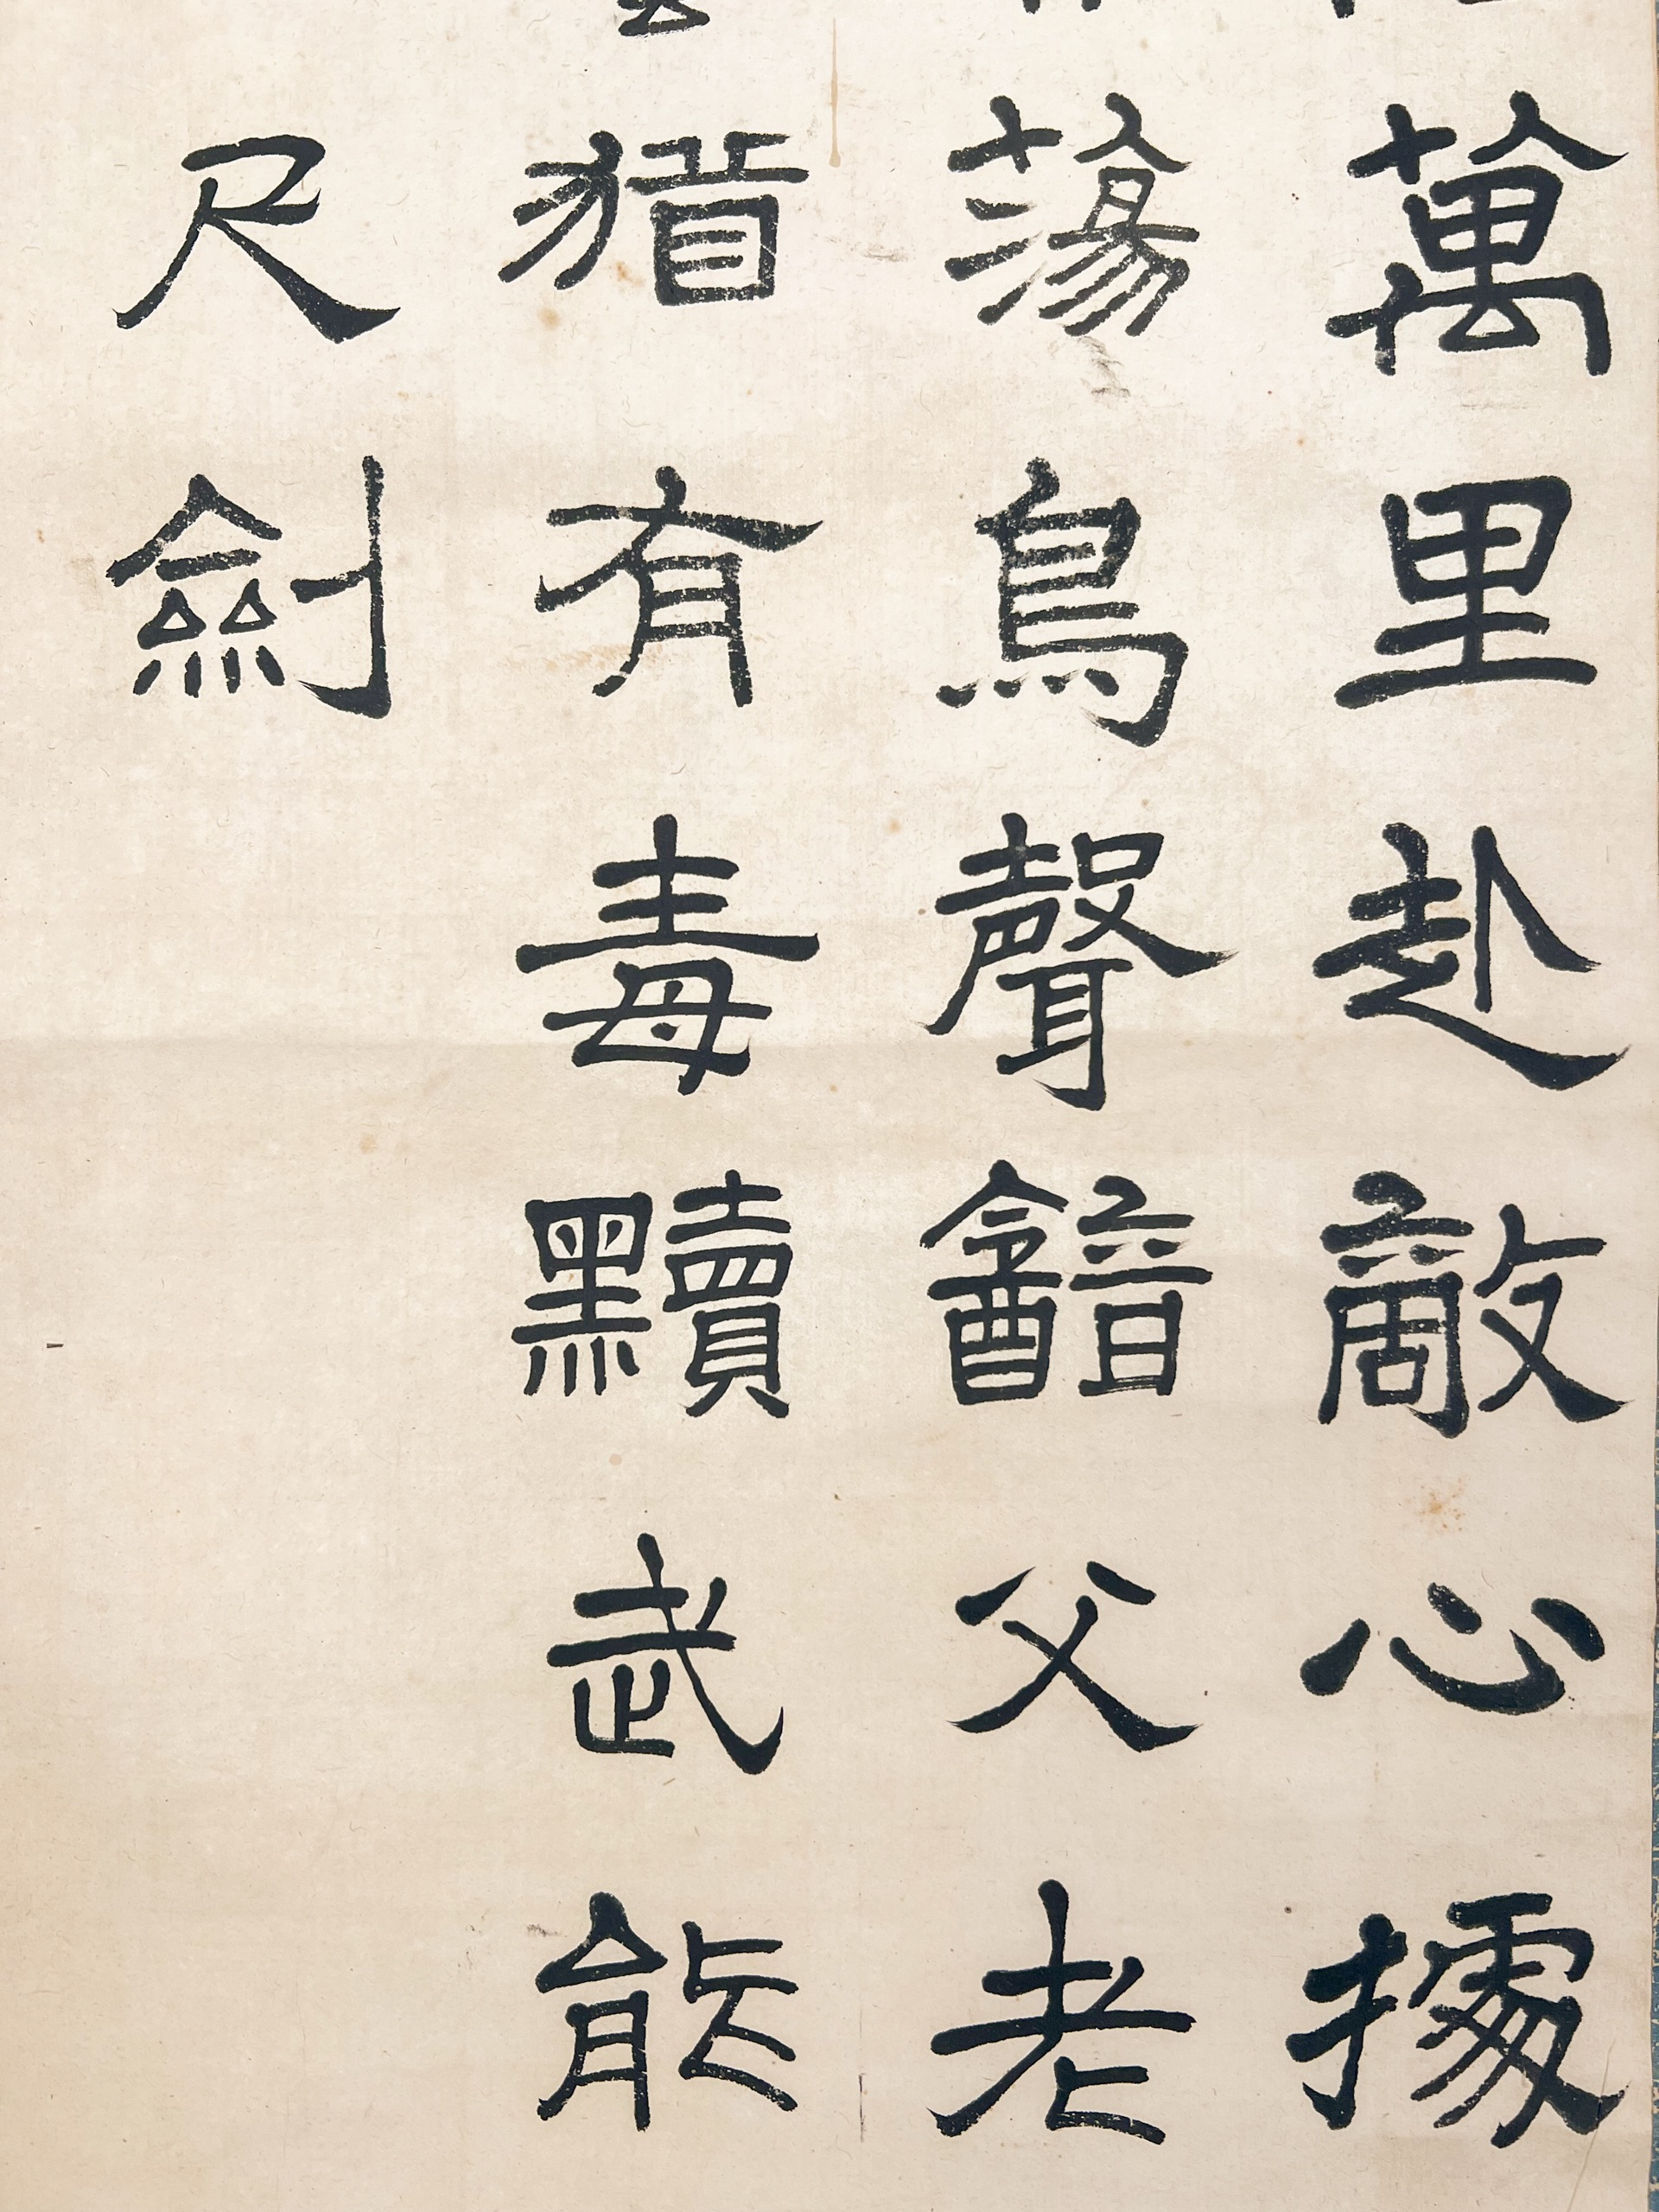 萬里赴敵心據
蕩鳥聲韽父老
猎有毒黷武能
尺劍